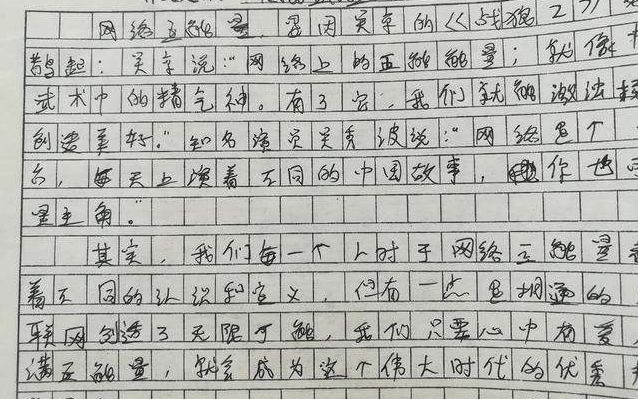 网络正能量,是因吴京的《《战狼2》》
鹊起:吴京说:“网络上的正能能量;就像
武术中的精气神。有了它,我们就能激法
创造美好。”知名演员关秀波说:“网络是个
台,每天上演着不同的中国故事,你也
是主角。”
其实,我们每一个人对于网络正能量
着不同的认识和定义,但有一点是相通的
联网创造了无限可能,我们只要心中有
满正能量,就会成为这个伟大时代的优秀